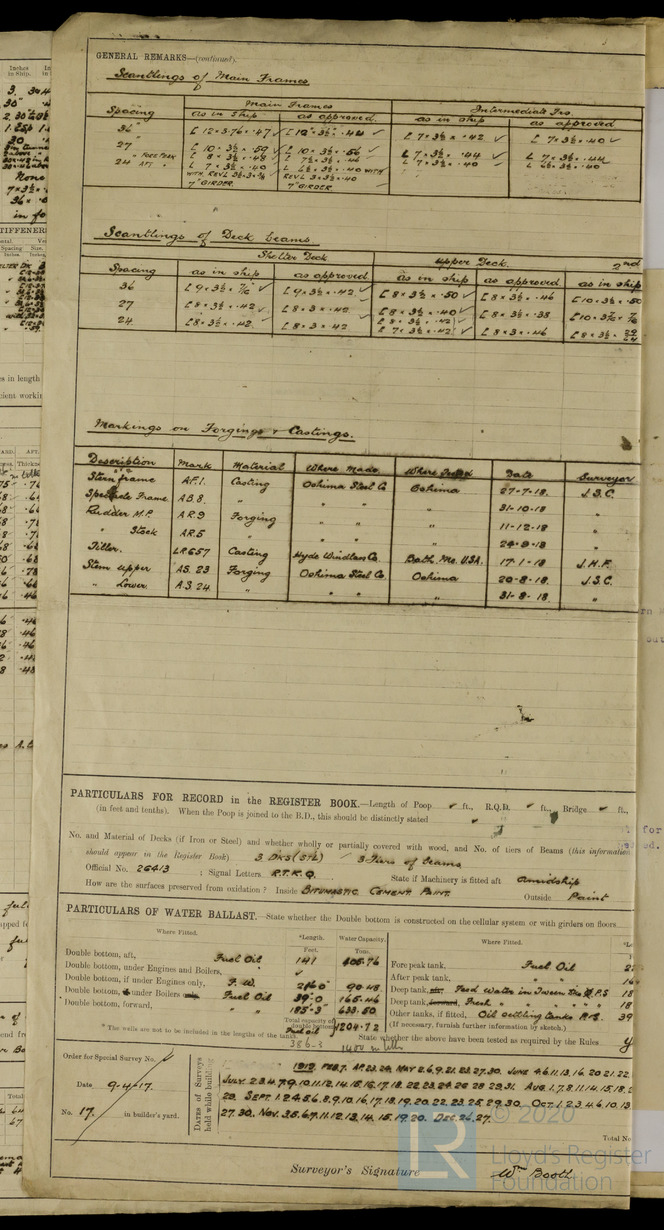 GENERAL REMARKS—(continued).
Scantlings of Main Frames
Main Frames Intermediate Frs.
Spacing as in ship as approved as in ship as approved
36" [ 12 × 3.76 × .47 ✓ [ 12 × 3½ × .44 ✓ [ 7 × 3½ × .42 ✓ [ 7 × 3½ × .40 ✓
27 [ 10 × 3½ × .59 ✓ [ 10 × 3½ × .56 ✓ [ 7 × 3½ × .44 ✓ L 7 × 3½ × .44
24 " FORE PEAK [ 8 × 3½ × .48 ✓ [ 7½ × 3½ × .46 L 7 × 3½ × .40 ✓ L 6½ × 3½ × .40
AFT " L 7 × 3½ × .40 L 6½ × 3½ × .40 WITH
WITH REVL 3½ × 3 × REVL 3 × 3½ × .40
7" GIRDER. 7" GIRDER
Scantlings of Deck beams
Shelter Deck Upper Deck. 2nd
Spacing as in ship as approved as in ship as approved as in ship
36 [ 9 × 3½ × 7/16 ✓ [ 9 × 3½ × .42 ✓ [ 8 × 3½ × .50 ✓ [ 8 × 3½ × .46 [ 10 × 3½ × .50
27 [ 8 × 3½ × .42 ✓ [ 8 × 3 × .42 [ 8 × 3½ × .40 ✓ [ 8 × 3½ × .38 [ 10 ×
24 [ 8 × 3½ × .42 ✓ [ 8 × 3 × .42 [ 8 × 3½ × .42 ✓
[ 7 × 3½ × .42 ✓ [ 8 × 3 × .46 [ 8 × 3½ ×
Markings on Forgings & Castings.
Description Mark Material Where Made Where Tested Date Surveyor
Stern frame A.F.1. Casting Oshima Steel Co Oshima 27-7-18. J.S.C.
Spectacle Frame A.B.8. " " " " 31-10-18 "
Rudder M.P. A.R.9 Forging " " " 11-12-18 "
" Stock A.R.5 " " " " 24-9-18 "
Tiller. LR657 Casting Hyde Windlass Co. Bath, Me. U.S.A. 17-1-18 J.H.F.
Stem upper A.S. 23 Forging Oshima Steel Co. Oshima 20-8-18 J.S.C.
" Lower A.S. 24 " " " " 31-8-18 "
PARTICULARS FOR RECORD in the REGISTER BOOK.—Length of Poop ✓ ft., R.Q.D. ✓ ft., Bridge ✓ ft.,
(in feet and tenths). When the Poop is joined to the B.D., this should be distinctly stated ✓
No. and Material of Decks (if Iron or Steel) and whether wholly or partially covered with wood, and No. of tiers of Beams (this information
should appear in the Register Book) 3 Dks (Stl) 3 Tiers of beams
Official No. 26413 ; Signal Letters R.T.K.Q. State if Machinery is fitted aft amidship
How are the surfaces preserved from oxidation ? Inside Bitumastic Cement Paint. Outside Paint
PARTICULARS OF WATER BALLAST.—State whether the Double bottom is constructed on the cellular system or with girders on floors
Where Fitted. *Length. Water Capacity. Where Fitted.
Feet. Tons.
Double bottom, aft, Fuel Oil 141 405.76 Fore peak tank, Fuel Oil
Double bottom, under Engines and Boilers, ✓ After peak tank, "
Double bottom, if under Engines only, F.W. 21.0 90.48 Deep tank, Feed Water in Tween Dks P.S 18
Double bottom, under Boilers Fuel Oil 39.0 165.46 Deep tank, Fresh " " " " 18
Double bottom, forward, " " 185.3 633.50 Other tanks, if fitted, Oil settling tanks P.S. 39
Total capacity of double bottom 1204.72 (If necessary, furnish further information by sketch.)
* The wells are not to be included in the lengths of the tanks. Fuel oil State whether the above have been tested as required by the Rules y
386.3
Order for Special Survey No.
Date 9-4-17.
No. 17. in builder's yard.
Dates of Surveys held while building
1918. FEB. 7. AP. 23.29. MAY 2.6.9.21.23.27.30. JUNE 4.6.11.13.16.20.21.22.
JULY 2.3.4.7.9.10.11.12.14.15.16.17.18.22.23.24.26.28.29.31. AUG. 1.7.8.11.14.15.18.
20. SEPT. 1.2.4.5.6.8.9.10.16.17.18.19.20.22.23.25.29.30. OCT. 1.2.3.4.6.10.13
27.30. NOV. 3.5.6.7.11.12.13.14.15.19.20. DEC. 26.27.
Total No
Surveyor's Signature Wm Booth
© 2020
LR
Lloyd's Register
Foundation